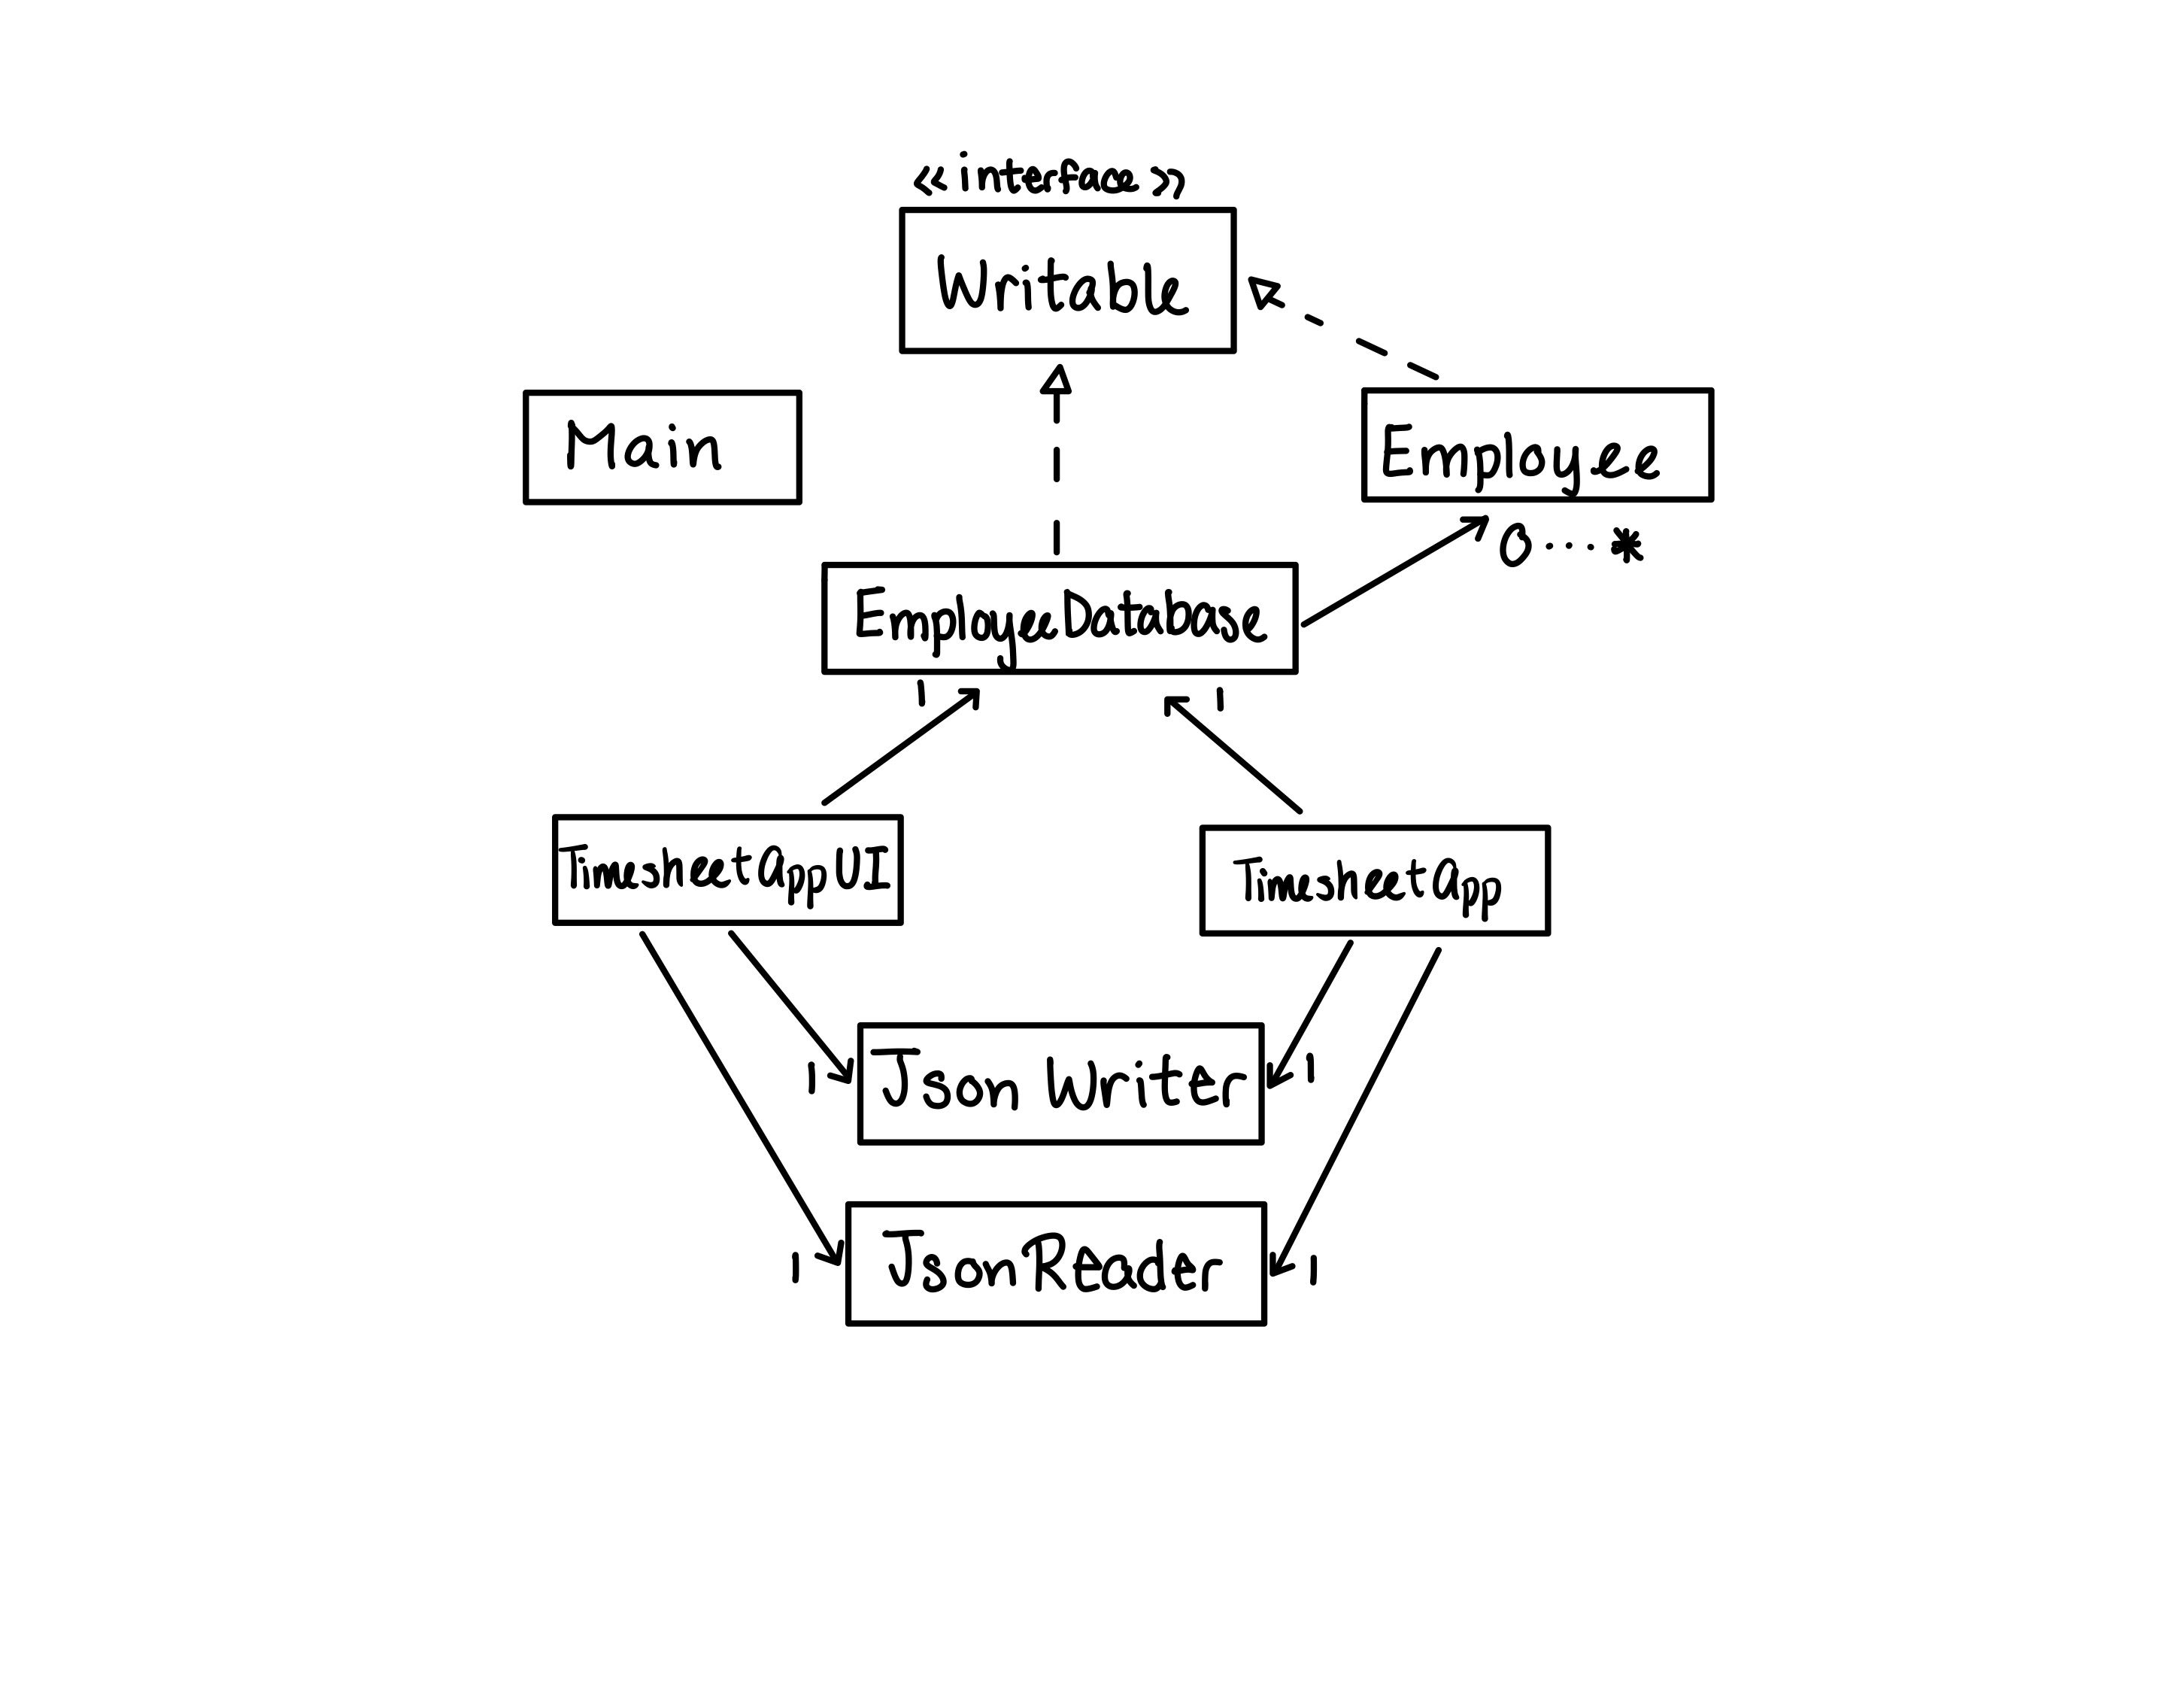 <<interface>>
Writable
Main
Employee
0...*
EmployeeDatabase
1
1
TimesheetAppUI
TimesheetApp
1
Json Writer
1
1
JsonReader
1